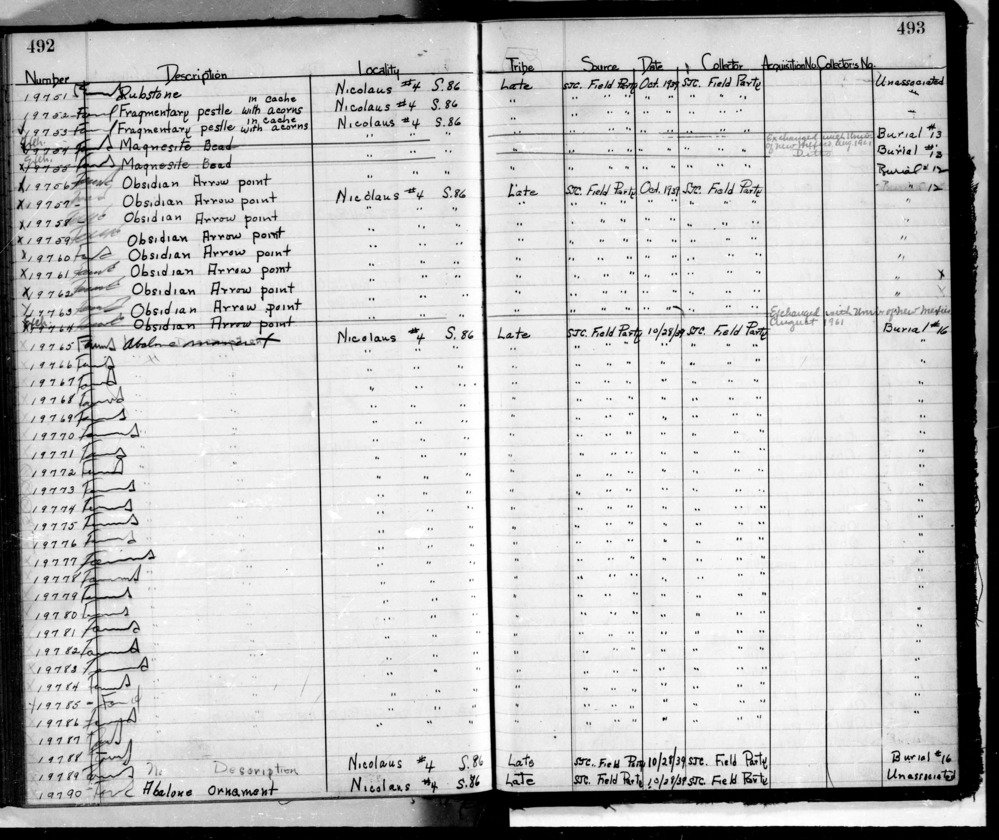 492
493
Number Description Locality Tribe Source Date Collector Acquisition No. Collectors No.
19751 Rubstone Nicolaus #4 S.86 Late SJC. Field Party Oct. 1939 SJC. Field Party Unassociated
19752 Fragmentary pestle in cache with acorns Nicolaus #4 S.86 " " " " " " " " "
19753 Fragmentary pestle in cache with acorns Nicolaus #4 S.86 " " " " " " " " "
19754 Magnesite Bead " " " " " " " " " " " Exchanged with Univ. of New Mexico Aug. 1961 Burial #13
19755 Magnesite Bead " " " " " " " " " " " Ditto Burial #13
19756 Obsidian Arrow point " " " " " " " " " " " Burial #12
19757 Obsidian Arrow point Nicolaus #4 S.86 Late SJC. Field Party Oct. 1939 SJC. Field Party " 12
19758 Obsidian Arrow point " " " " " " " " " " "
19759 Obsidian Arrow point " " " " " " " " " " " "
19760 Obsidian Arrow point " " " " " " " " " " " "
19761 Obsidian Arrow point " " " " " " " " " " " " x
19762 Obsidian Arrow point " " " " " " " " " " " " x
19763 Obsidian Arrow point " " " " " " " " " " "
19764 Obsidian Arrow point " " " " " " " " " " " Exchanged with Univ. of New Mexico August 1961
19765 Found Nicolaus #4 S.86 Late SJC. Field Party 10/28/39 SJC. Field Party Burial #16
19766 Found " " " " " " " " " " " "
19767 Found " " " " " " " " " " " "
19768 Found " " " " " " " " " " " "
19769 Found " " " " " " " " " " " "
19770 Found " " " " " " " " " " " "
19771 Found " " " " " " " " " " " "
19772 Found " " " " " " " " " " " "
19773 Found " " " " " " " " " " " "
19774 Found " " " " " " " " " " " "
19775 Found " " " " " " " " " " " "
19776 Found " " " " " " " " " " " "
19777 Found " " " " " " " " " " " "
19778 Found " " " " " " " " " " " "
19779 Found " " " " " " " " " " " "
19780 Found " " " " " " " " " " " "
19781 Found " " " " " " " " " " " "
19782 Found " " " " " " " " " " " "
19783 Found " " " " " " " " " " " "
19784 Found " " " " " " " " " " " "
19785 Found " " " " " " " " " " " "
19786 Found " " " " " " " " " " " "
19787 Found
19788 Found
19789 Found No Description Nicolaus #4 S.86 Late SJC. Field Party 10/28/39 SJC. Field Party Burial #16
19790 Abalone Ornament Nicolaus #4 S.86 Late SJC. Field Party 10/28/39 SJC. Field Party Unassociated